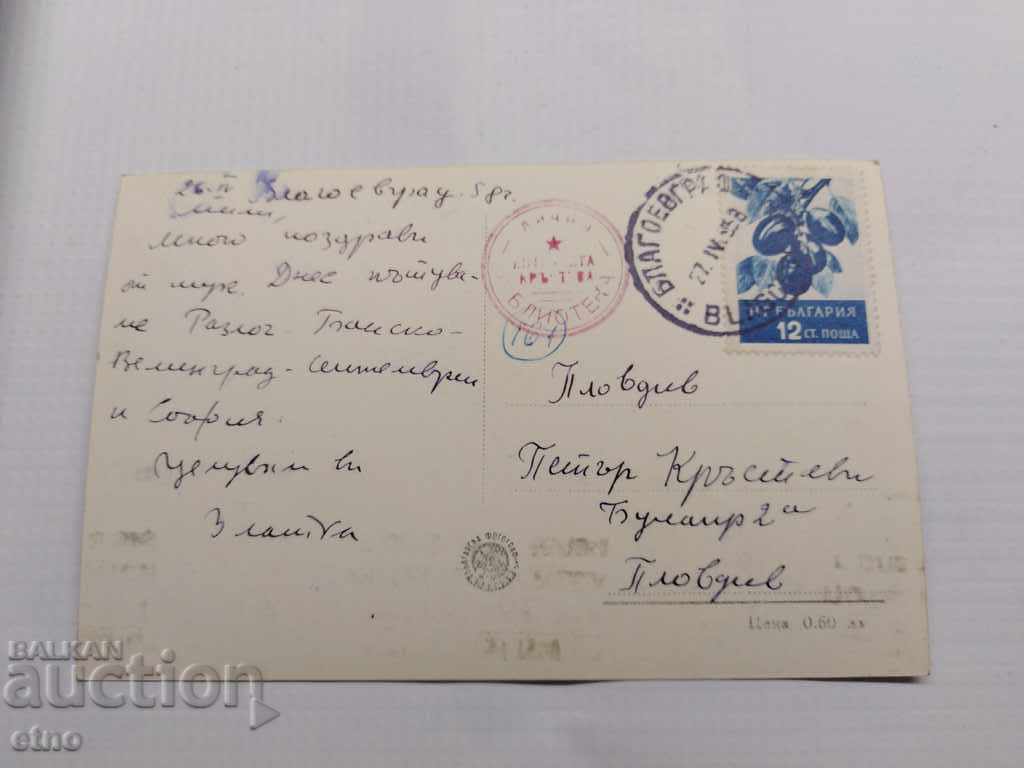 26. IV Благоевград. 58г.
Мили,
много поздрави
от мук. Днес пътува-
ме Разлог - Банско -
Велинград - септември
и София.
Целувки ви
Златка
БИБЛИОТЕКА
161
БЛАГОЕВГРАД
27.IV.58
НР БЪЛГАРИЯ
12 СТ. ПОЩА
Пловдив
Петър Кръстеви
Булаир 2а
Пловдив
Цена 0.60 лв
BALKAN
auction
etno